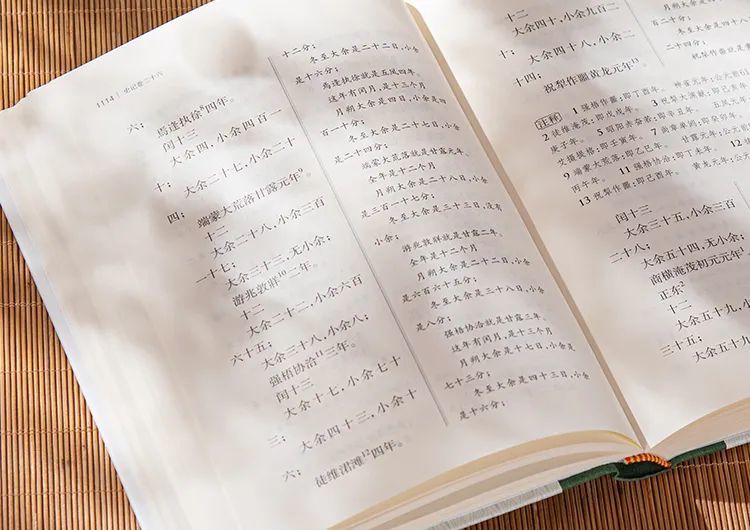 1114 | 史记卷二十六
六；
焉逢执徐⁸四年。
闰十三
大余四，小余四百一
十；
大余二十七，小余二十
四；
端蒙大荒落甘露元年⁹。
十二
大余二十八，小余三百
一十七；
大余三十三，无小余；
游兆敦牂¹⁰二年。
十二
大余二十二，小余六百
六十五；
大余三十八，小余八；
强梧协洽¹¹三年。
闰十三
大余十七，小余七十
三；
大余四十三，小余十
六；
徒维涒滩¹²四年。
十二分；
冬至大余是二十二日，小余
是十六分；
焉逢执徐就是五凤四年。
这年有闰月，是十三个月
月朔大余是四日，小余是四
百一十分；
冬至大余是二十七日，小余
是二十四分；
端蒙大荒落就是甘露元年。
全年是十二个月
月朔大余是二十八日，小余
是三百一十七分；
冬至大余是三十三日，没有
小余；
游兆敦牂就是甘露二年。
全年是十二个月
月朔大余是二十二日，小余
是六百六十五分；
冬至大余是三十八日，小余
是八分；
强梧协洽就是甘露三年。
这年有闰月，是十三个月
月朔大余是十七日，小余是
七十三分；
冬至大余是四十三日，小余
是十六分；
十二
大余四十，小余九百二
十；
大余四十八，小余二
十四；
祝犁作噩黄龙元年¹³。
百二十分；
冬至大余是四十
二十四分；
注释
1 强梧作噩：即丁酉年。 神爵元年：公元前
2 徒维淹茂：即戊戌年。 3 祝犁大渊献：即己亥年
庚子年。 5 昭阳赤奋若：即辛丑年。 五凤元年
文摄提格：即壬寅年。 7 尚章单阏：即癸卯年。
9 端蒙大荒落：即乙巳年。 甘露元年：公元
丙午年。 11 强梧协洽：即丁未年。 12
13 祝犁作噩：即己酉年。 黄龙元年：公元
闰十三
大余三十五，小余三百
二十八；
大余五十四，无小余；
商横淹茂初元元年¹。
正东²
十二
大余五十九，小
三十五；
大余五十